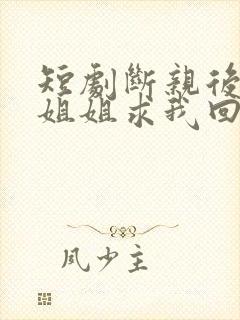 短劇斷親後
姐姐求我回
風少主